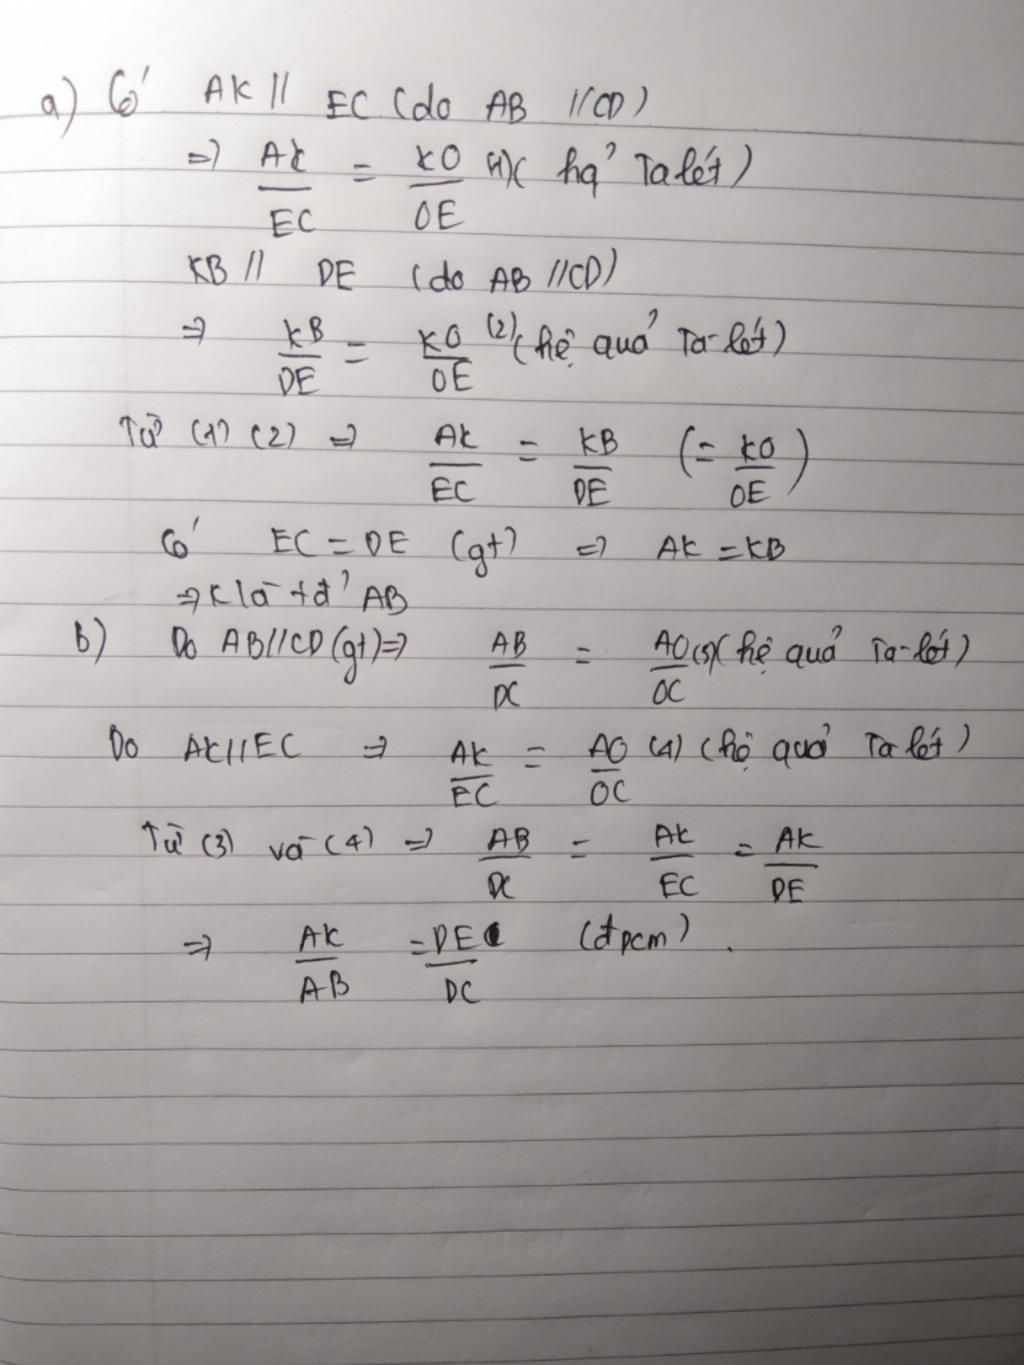 a) Có AK // EC (do AB // CD)
=> AK/EC = KO/OE (1) (hq' Ta lét)
KB // DE (do AB // CD)
=> KB/DE = KO/OE (2) (hệ quả Ta-lét)
Từ (1) (2) => AK/EC = KB/DE (= KO/OE)
Có EC = DE (gt) => AK = KB
=> K là tđ' AB
b) Do AB // CD (gt) => AB/DC = AO/OC (3) (hệ quả Ta-lét)
Do AK // EC => AK/EC = AO/OC (4) (hệ quả Ta lét)
Từ (3) và (4) => AB/DC = AK/EC = AK/DE
=> AK/AB = DE/DC (đpcm).